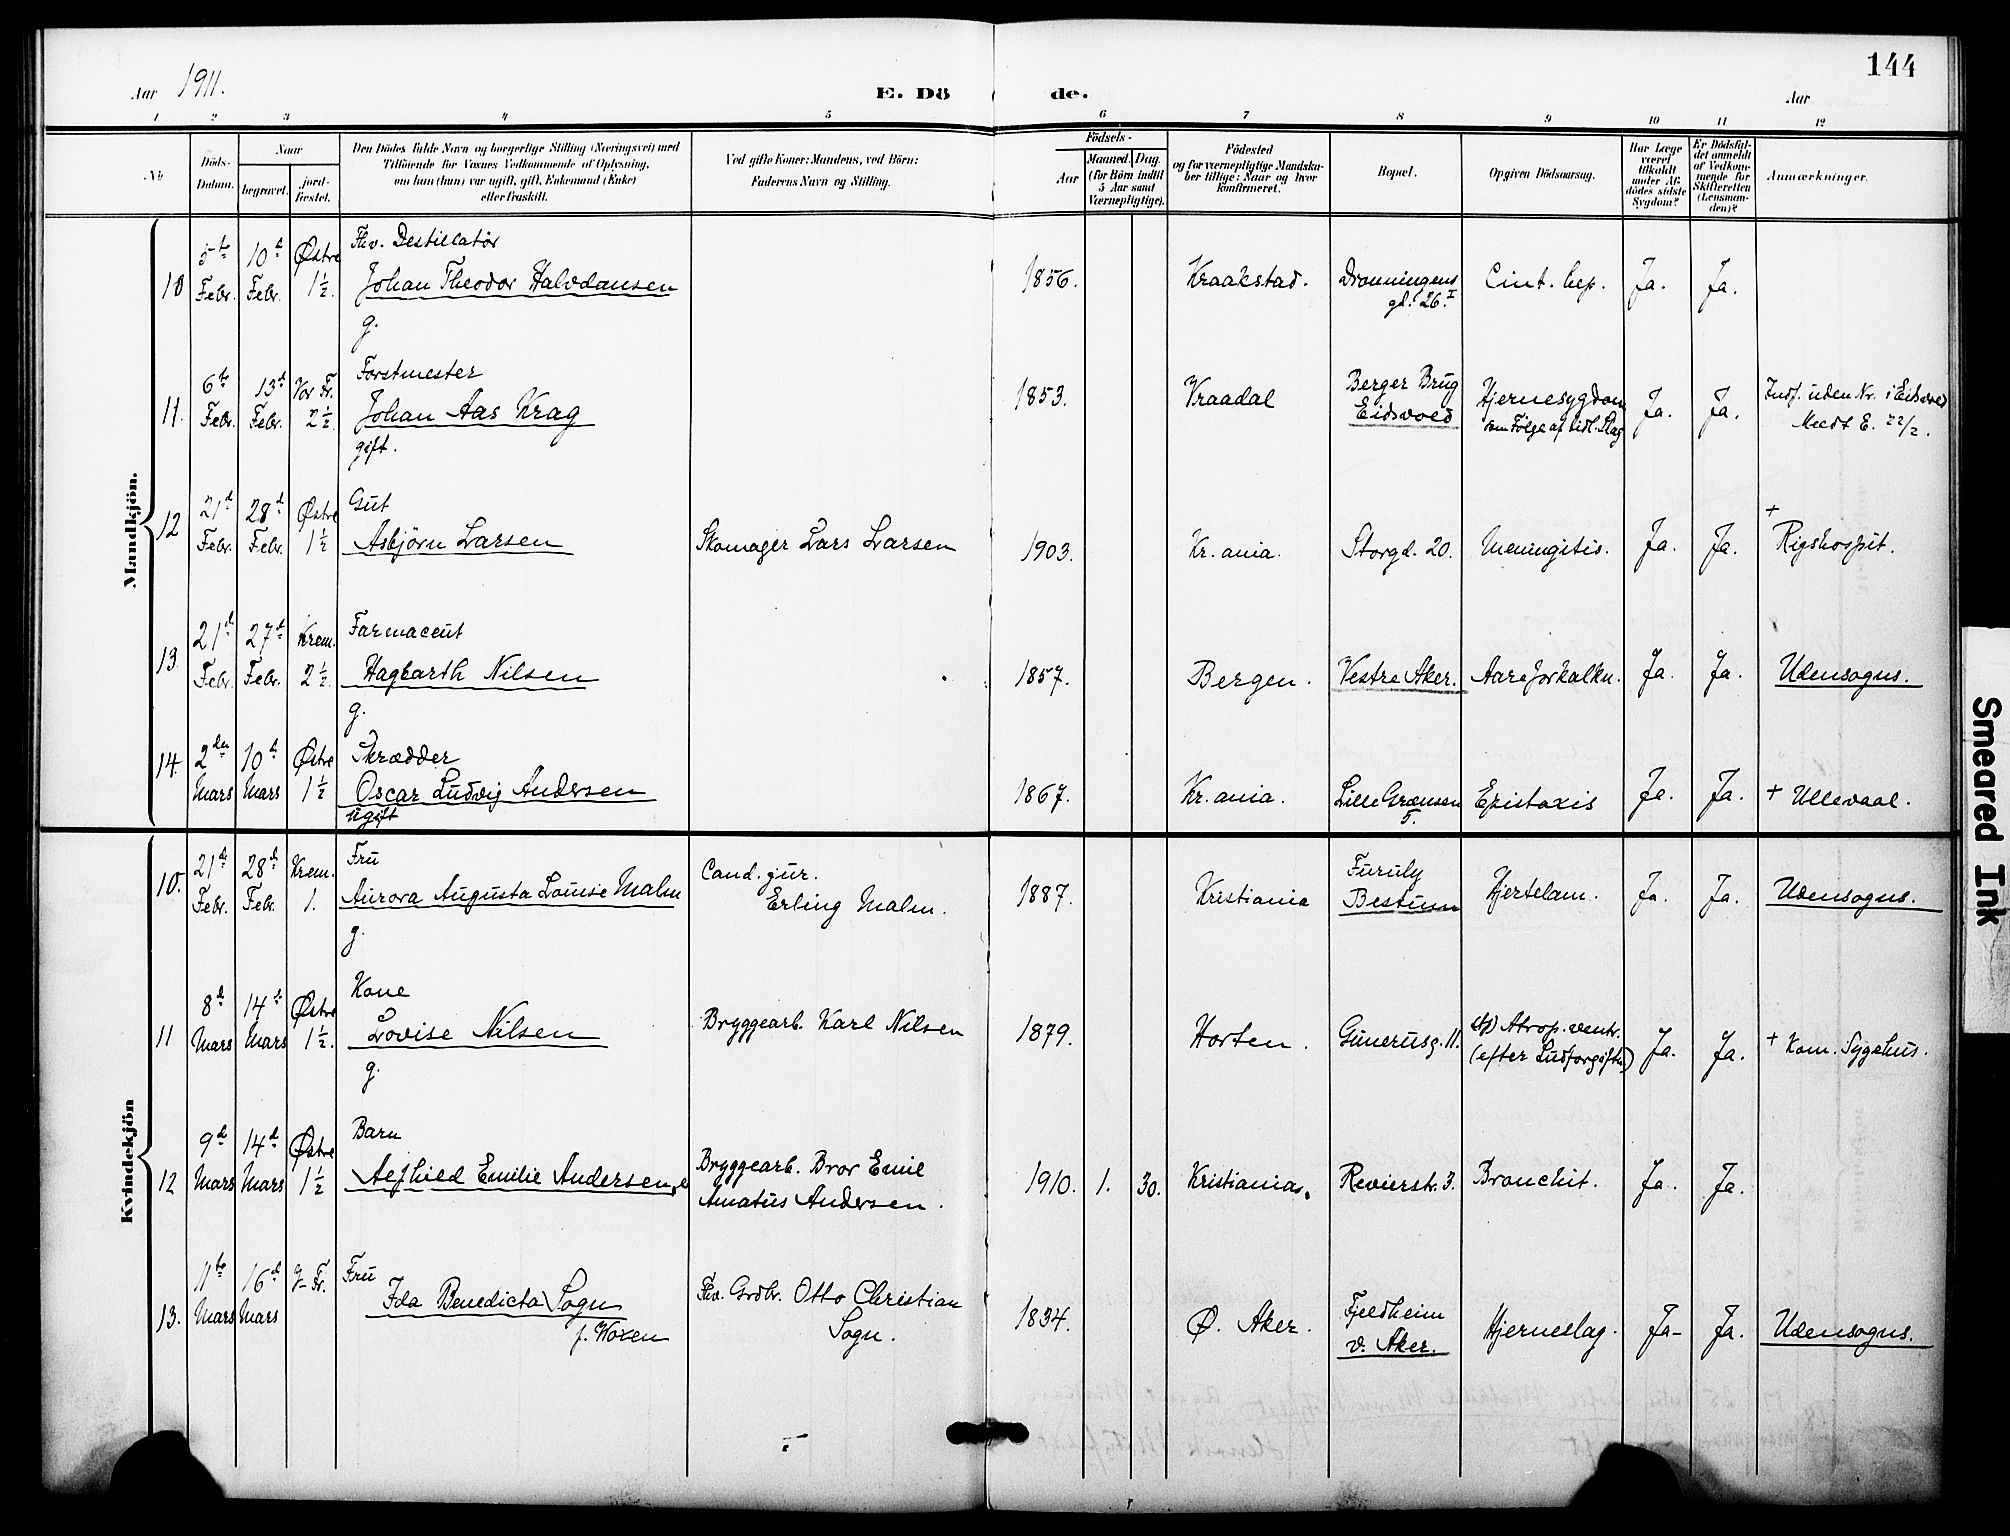 144
Aar 1911. E. Dö de. Aar
1 2 3 4 5 6 7 8 9 10 11 12
No
Döds-
Datum.
Naar
begravet. jord-
fæstet.
Den Dödes fulde Navn og borgerlige Stilling (Næringsvei) med
Tilföiende for Voxnes Vedkommende af Oplysning,
om han (hun) var ugift, gift, Enkemand (Enke)
eller fraskilt.
Ved gifte Koner: Mandens, ved Börn:
Faderens Navn og Stilling.
Födsels-
Aar
Maaned. Dag.
(for Börn indtil
5 Aar samt
Værnepligtige).
Födested
og for værnepligtige Mandska-
ber tillige: Naar og hvor
konfirmeret.
Bopæl.
Opgiven Dödsaarsag.
Har Læge
været
tilkaldt
under Af-
dödes sidste
Sygdom?
Er Dödsfal-
det anmeldt
af Vedkom-
mende for
Skifteretten
(Lensman-
den)?
Anmærkninger.
Mandkjön.
10 5te Febr. 10d Febr. Østre 1½.
Fhv. Destillatør
Johan Theodor Halvdansen
g.
1856. Kraakstad. Dronningens
gd. 26.I Cint. hep. Ja. Ja.
11. 6te Febr. 13d Febr. Vor Fr. 2½.
Forstmester
Johan Aas Krag
gift.
1853. Vraadal Berger Brug
Eidsvold Hjernesygdom
som Følge af tidl. Slag Ja. Ja. Indf. uden Nr. i Eidsvold
Medt E. 22/2.
12 21d Febr. 28d Febr. Østre 1½
Gut
Asbjørn Larsen
Skomager Lars Larsen
1903. Kr.ania. Storgd. 20. Meningitis. Ja. Ja. + Rigshospit.
13. 21d Febr. 27d Febr. Krem. 2½.
Farmaceut
Hagbarth Nilsen
g.
1857. Bergen. Vestre Aker. Aareforkalkn. Ja. Ja. Udensogns.
14. 2den Mars 10d Mars Østre 1½
Skrædder
Oscar Ludvig Andersen
ugift
1867. Kr.ania. Lille Grænsen
5. Epistaxis Ja. Ja. + Ullevaal.
Kvindekjön
10. 21d Febr. 28d Febr. Krem. 1.
Fru
Aurora Augusta Louise Malm
g.
Cand. jur.
Erling Malm.
1887. Kristiania Furuly
Bestum Hjertelam. Ja. Ja. Udensogns.
11 8d Mars 14d Mars Østre 1½.
Kone
Lovise Nilsen
g.
Bryggearb. Karl Nilsen
1879. Horten. Gunerusg. 11. Atrop. ventr.
(efter Ludforgiftn) Ja. Ja. + Kom. Sygehus.
12 9d Mars 14d Mars Østre 1½
Barn
Aefhied Emilie Andersen
Bryggearb. Bror Emil
Amatus Andersen.
1910. 1. 30. Kristiania. Revierstr. 3. Bronchit. Ja. Ja.
13. 11te Mars 16d Mars Fr.
Fru
Ida Benedicta Sogn
f. Woxen
Fhv. Grdbr. Otto Christian
Sogn.
1834. Ø. Aker. Fjeldheim
V. Aker. Hjerneslag. Ja- Ja. Udensogns.
Smeared Ink